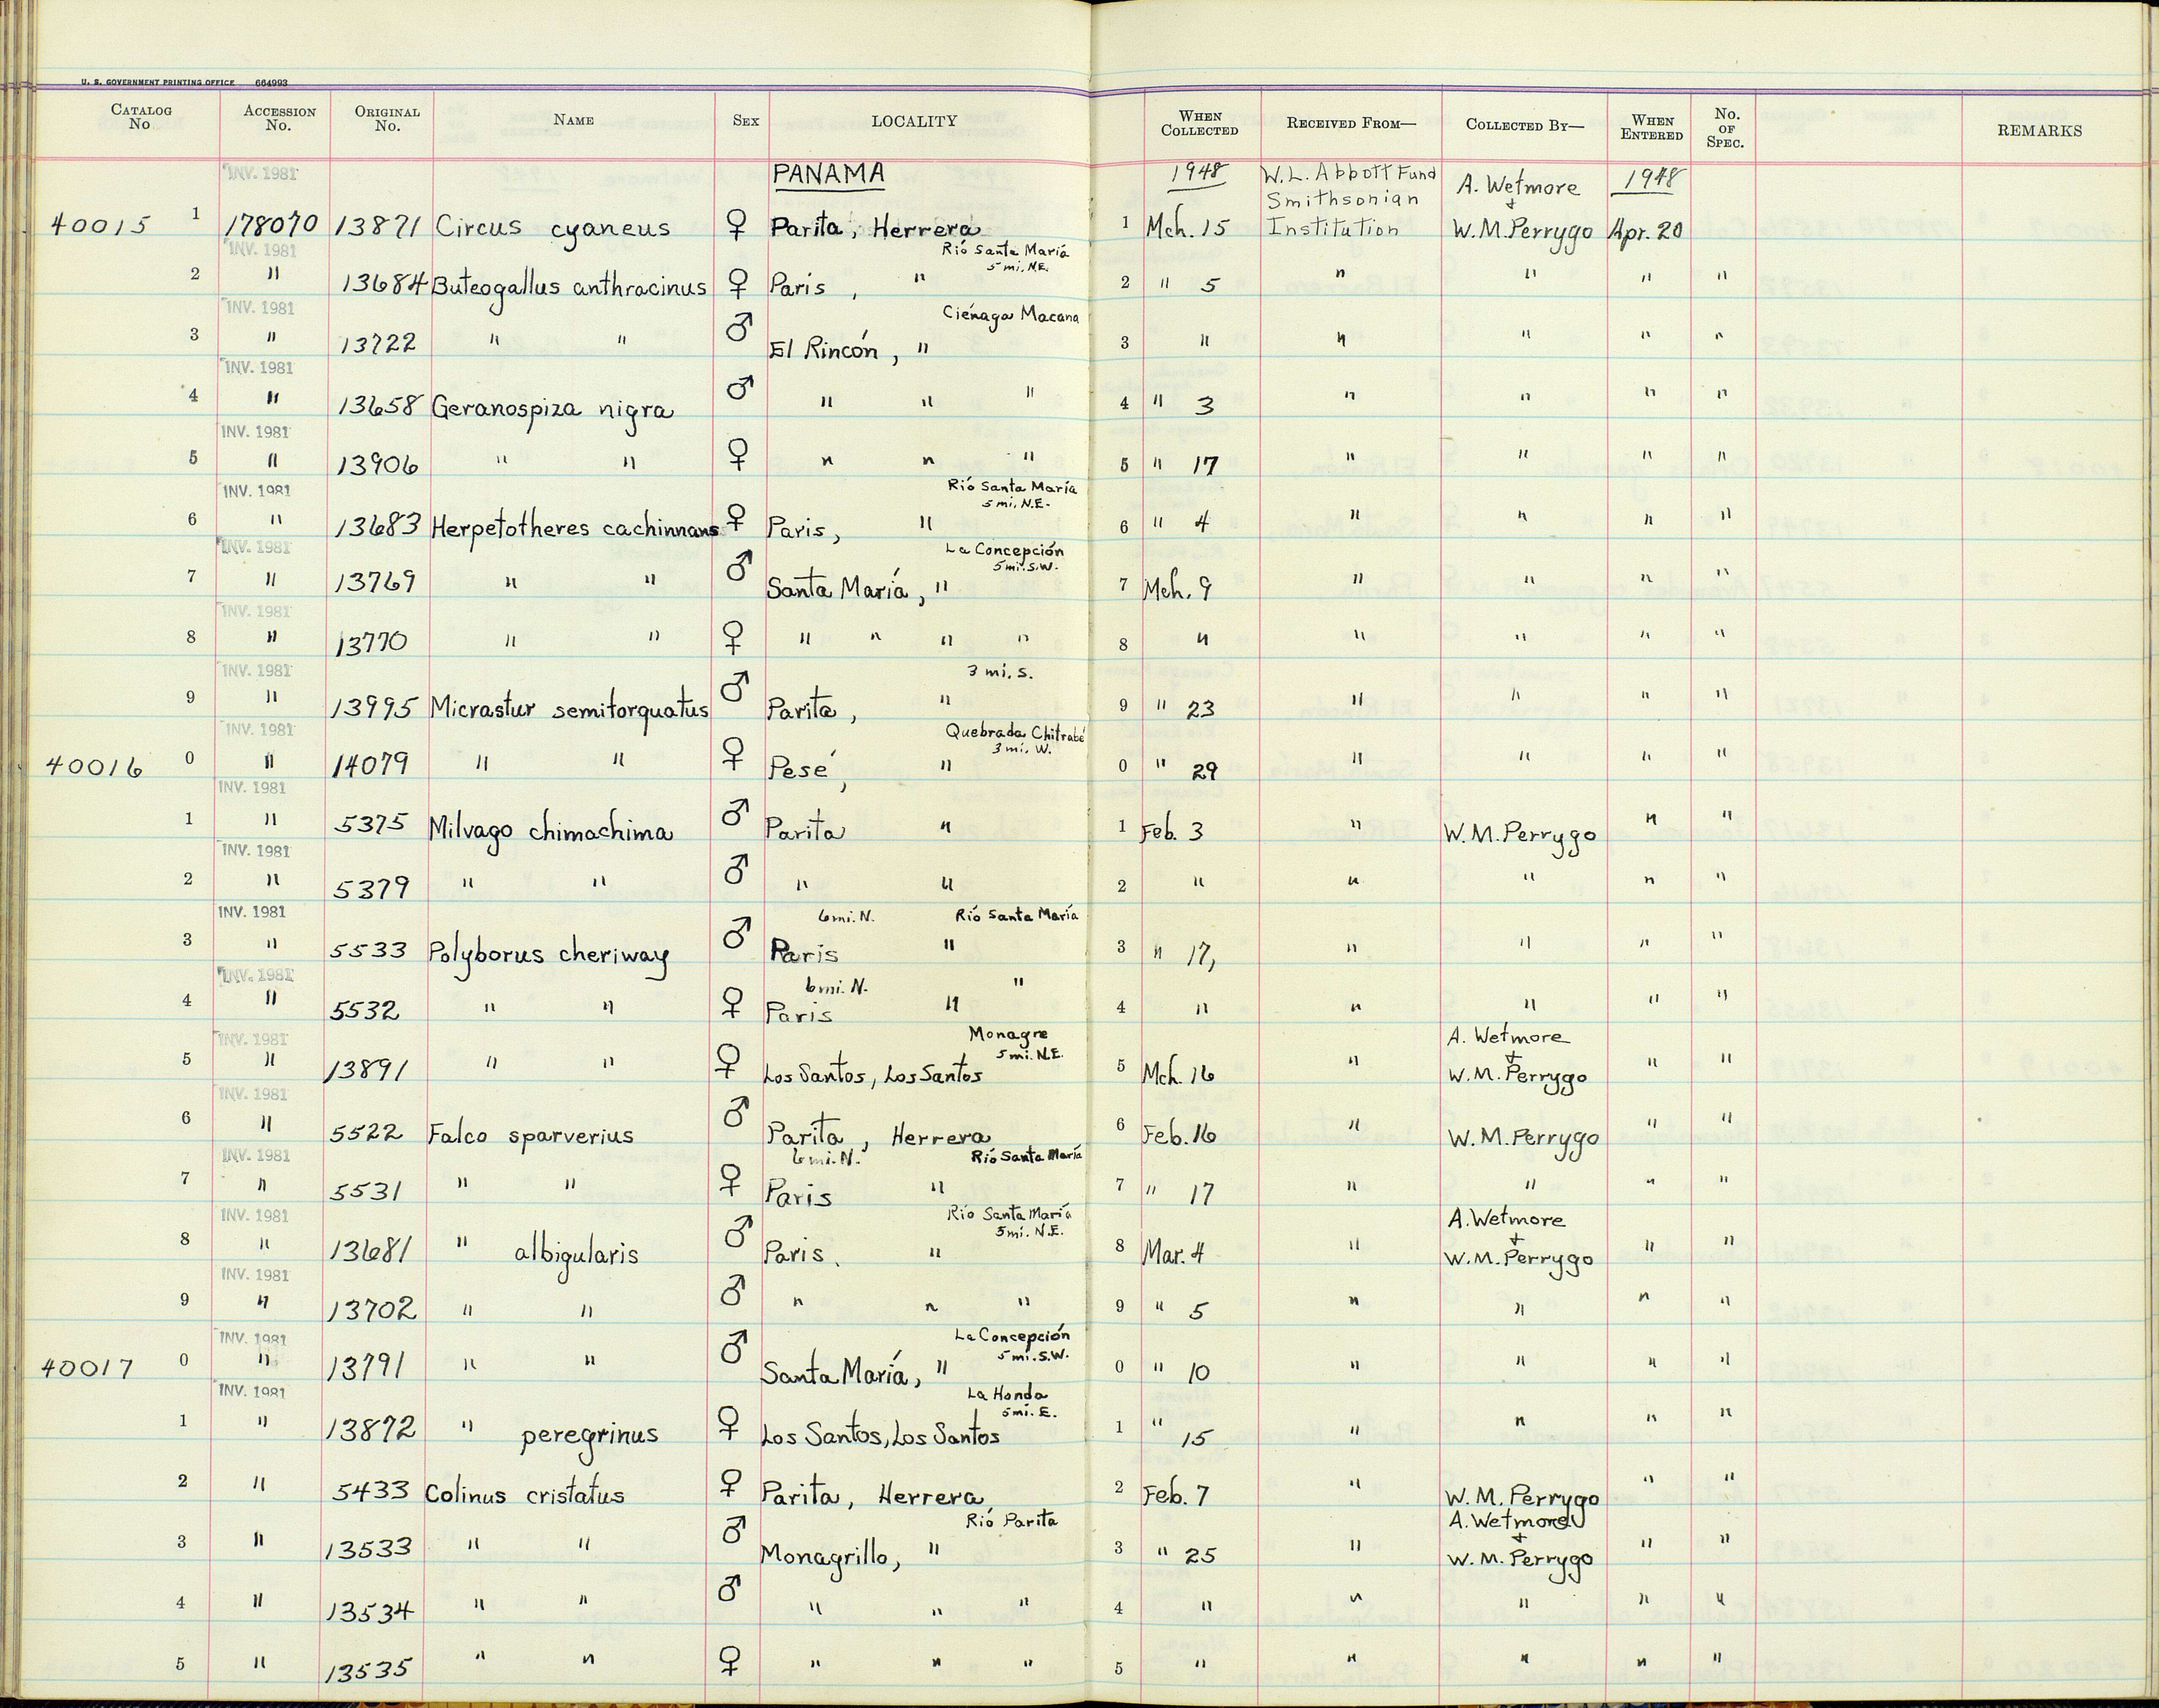 U. S. GOVERNMENT PRINTING OFFICE 664993
CATALOG No ACCESSION No. ORIGINAL No. NAME SEX LOCALITY WHEN COLLECTED RECEIVED FROM— COLLECTED BY— WHEN ENTERED No. OF SPEC. REMARKS
INV. 1981 PANAMA 1948 W.L. Abbott Fund A. Wetmore 1948
Smithsonian +
40015 1 178070 13871 Circus cyaneus ♀ Parita, Herrera 1 Mch. 15 Institution W.M. Perrygo Apr. 20
INV. 1981 Río Santa María
5 mi. N.E.
2 " 13684 Buteogallus anthracinus ♀ Paris , " 2 " 5 " " " "
INV. 1981 Ciénaga Macana
3 " 13722 " " ♂ El Rincón, " 3 " " " " "
INV. 1981
4 " 13658 Geranospiza nigra ♂ " " " 4 " 3 " " " "
INV. 1981
5 " 13906 " " ♀ " " " 5 " 17 " " " "
INV. 1981 Río Santa María
5 mi. N.E.
6 " 13683 Herpetotheres cachinnans ♀ Paris, " 6 " 4 " " " "
INV. 1981 La Concepción
5 mi. S.W.
7 " 13769 " " ♂ Santa María, " 7 Mch. 9 " " " "
INV. 1981
8 " 13770 " " ♀ " " " " 8 " " " " "
INV. 1981 3 mi. S.
9 " 13995 Micrastur semitorquatus ♂ Parita, " 9 " 23 " " " "
INV. 1981 Quebrada Chitrabé
3 mi. W.
40016 0 " 14079 " " ♀ Pesé, " 0 " 29 " " " "
INV. 1981
1 " 5375 Milvago chimachima ♂ Parita " 1 Feb. 3 " W.M. Perrygo " "
INV. 1981
2 " 5379 " " ♂ " " 2 " " " " "
INV. 1981 6 mi. N. Río Santa María
3 " 5533 Polyborus cheriway ♂ Paris " 3 " 17, " " " "
INV. 1981 6 mi. N. "
4 " 5532 " " ♀ Paris " 4 " " " " "
INV. 1981 Monagre A. Wetmore
5 mi. N.E. +
5 " 13891 " " ♀ Los Santos, Los Santos 5 Mch. 16 " W.M. Perrygo " "
INV. 1981
6 " 5522 Falco sparverius ♂ Parita, Herrera 6 Feb. 16 " W.M. Perrygo " "
INV. 1981 6 mi. N. Río Santa María
7 " 5531 " " ♀ Paris " 7 " 17 " " " "
INV. 1981 Río Santa María A. Wetmore
5 mi. N.E. +
8 " 13681 " albigularis ♂ Paris. " 8 Mar. 4 " W.M. Perrygo " "
INV. 1981
9 " 13702 " " ♂ " " " 9 " 5 " " " "
INV. 1981 La Concepción
5 mi. S.W.
40017 0 " 13791 " " ♂ Santa María, " 0 " 10 " " " "
INV. 1981 La Honda
5 mi. E.
1 " 13872 " peregrinus ♀ Los Santos, Los Santos 1 " 15 " " " "
2 " 5433 Colinus cristatus ♀ Parita, Herrera 2 Feb. 7 " W.M. Perrygo " "
Río Parita A. Wetmore
+
3 " 13533 " " ♂ Monagrillo, " 3 " 25 " W.M. Perrygo " "
4 " 13534 " " ♂ " " " 4 " " " " "
5 " 13535 " " ♀ " " " 5 " " " " "